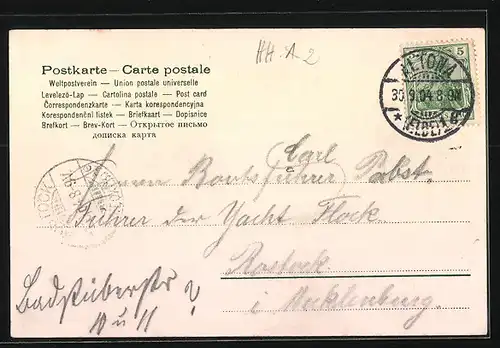 HH-A-2
Postkarte — Carte postale
Weltpostverein — Union postale universelle
Levelező-Lap — Cartolina postale — Post card
Correspondenzkarte — Karta korespondencyjna
Korespondenční lístek — Briefkaart — Dopisnice
Brefkort — Brev-Kort — Открытое письмо
дописка карта
5
ALTONA
30.9.04 8-9N
Carl
Herrn Bootsführer Pabst,
Führer der Yacht Flock
Rostock
i Mecklenburg.
Badstüberstr ?
10 u 11